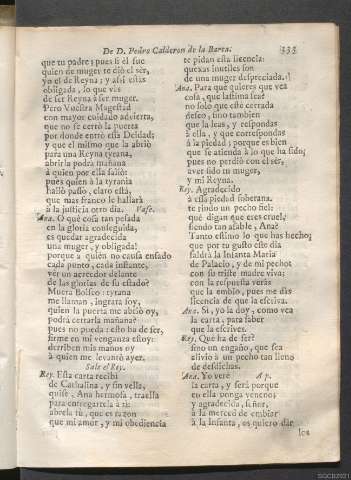 De D. Pedro Calderon de la Barca.
333
que tu padre; pues si èl fue
quien de muger te diò el sèr,
yo el de Reyna; y assi estàs
obligada, lo que vàs
de ser Reyna à ser muger.
Pero Vuestra Magestad
con mayor cuidado advierta,
que no se cerrò la puerta
por donde entrò esta Deidad;
y que el mismo que la abriò
para una Reyna tyrana,
abrirla podrà mañana
à quien por ella saliò:
pues quien à la tyrania
hallò passo, claro està,
que mas franco le hallarà
à la justicia otro dia. Vase.
Ana. O què cosa tan pesada
en la gloria conseguida,
es quedar agradecida
una muger, y obligada!
porque à quièn no causa enfado
cada punto, cada instante,
vèr un acreedor delante
de las glorias de su estado?
Muera Bolseo: tyrana
me llaman, ingrata soy,
quien la puerta me abriò oy,
podrà cerrarla mañana?
pues no pueda: esto ha de ser,
firme en mi venganza estoy:
derriben mis manos oy
à quien me levantò ayer.
Sale el Rey.
Rey. Esta carta recibì
de Cathalina, y sin vella,
quise, Ana hermosa, traella
para entregartela à tì:
abrela tù, que es razon
que mi amor, y mi obediencia
te pidan esta licencia:
quexas inutiles son
de una muger despreciada.
Ana. Para què quieres que vea
cosa, que lastima sea?
no solo que estè cerrada
deseo, sino tambien
que la leas, y respondas
à ella, y que correspondas
à la piedad; porque es bien
que se atienda à lo que ha sido;
pues no perdiò con el sèr,
aver sido tu muger,
y mi Reyna.
Rey. Agradecido
à essa piedad soberana,
te rindo un pecho fiel:
què digan que eres cruel,
siendo tan afable, Ana?
Tanto estimo lo que has hecho,
que por tu gusto este dia
saldrà la Infanta Maria
de Palacio, y de mi pecho:
con su triste madre viva;
con la respuesta veràs
que la embio, pues me dàs
licencia de que la escriva.
Ana. Sì, yo la doy, como vea
la carta, para saber
que la escrives.
Rey. Què ha de ser?
sino un engaño, que sea
alivio à un pecho tan lleno
de desdichas.
Ana. Yo verè Ap.
la carta, y serà porque
en ella ponga veneno;
y agradecida, señor,
à la merced de embiar
à la Infanta, os quiero dàr
los
SGCB2021